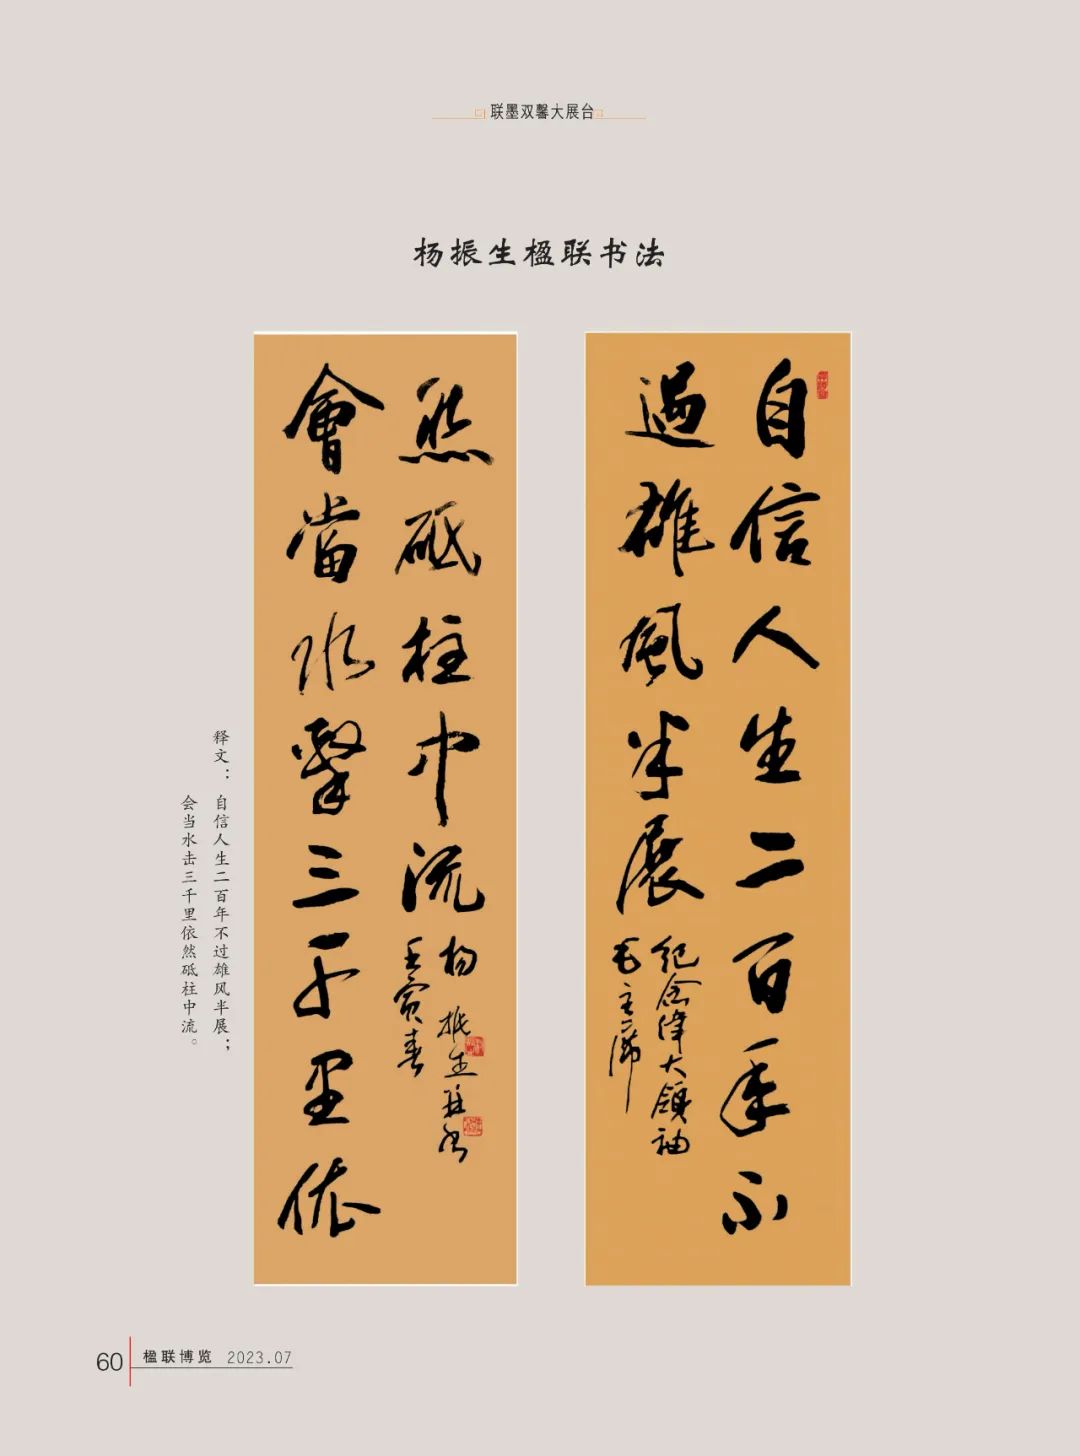 联墨双馨大展台
杨振生楹联书法
自信人生二百年不
過雄風半展
纪念伟大领袖
毛主席
會當水擊三千里依
然砥柱中流
杨振生联书
壬寅春
释文：自信人生二百年不过雄风半展；
会当水击三千里依然砥柱中流。
60 楹联博览 2023.07